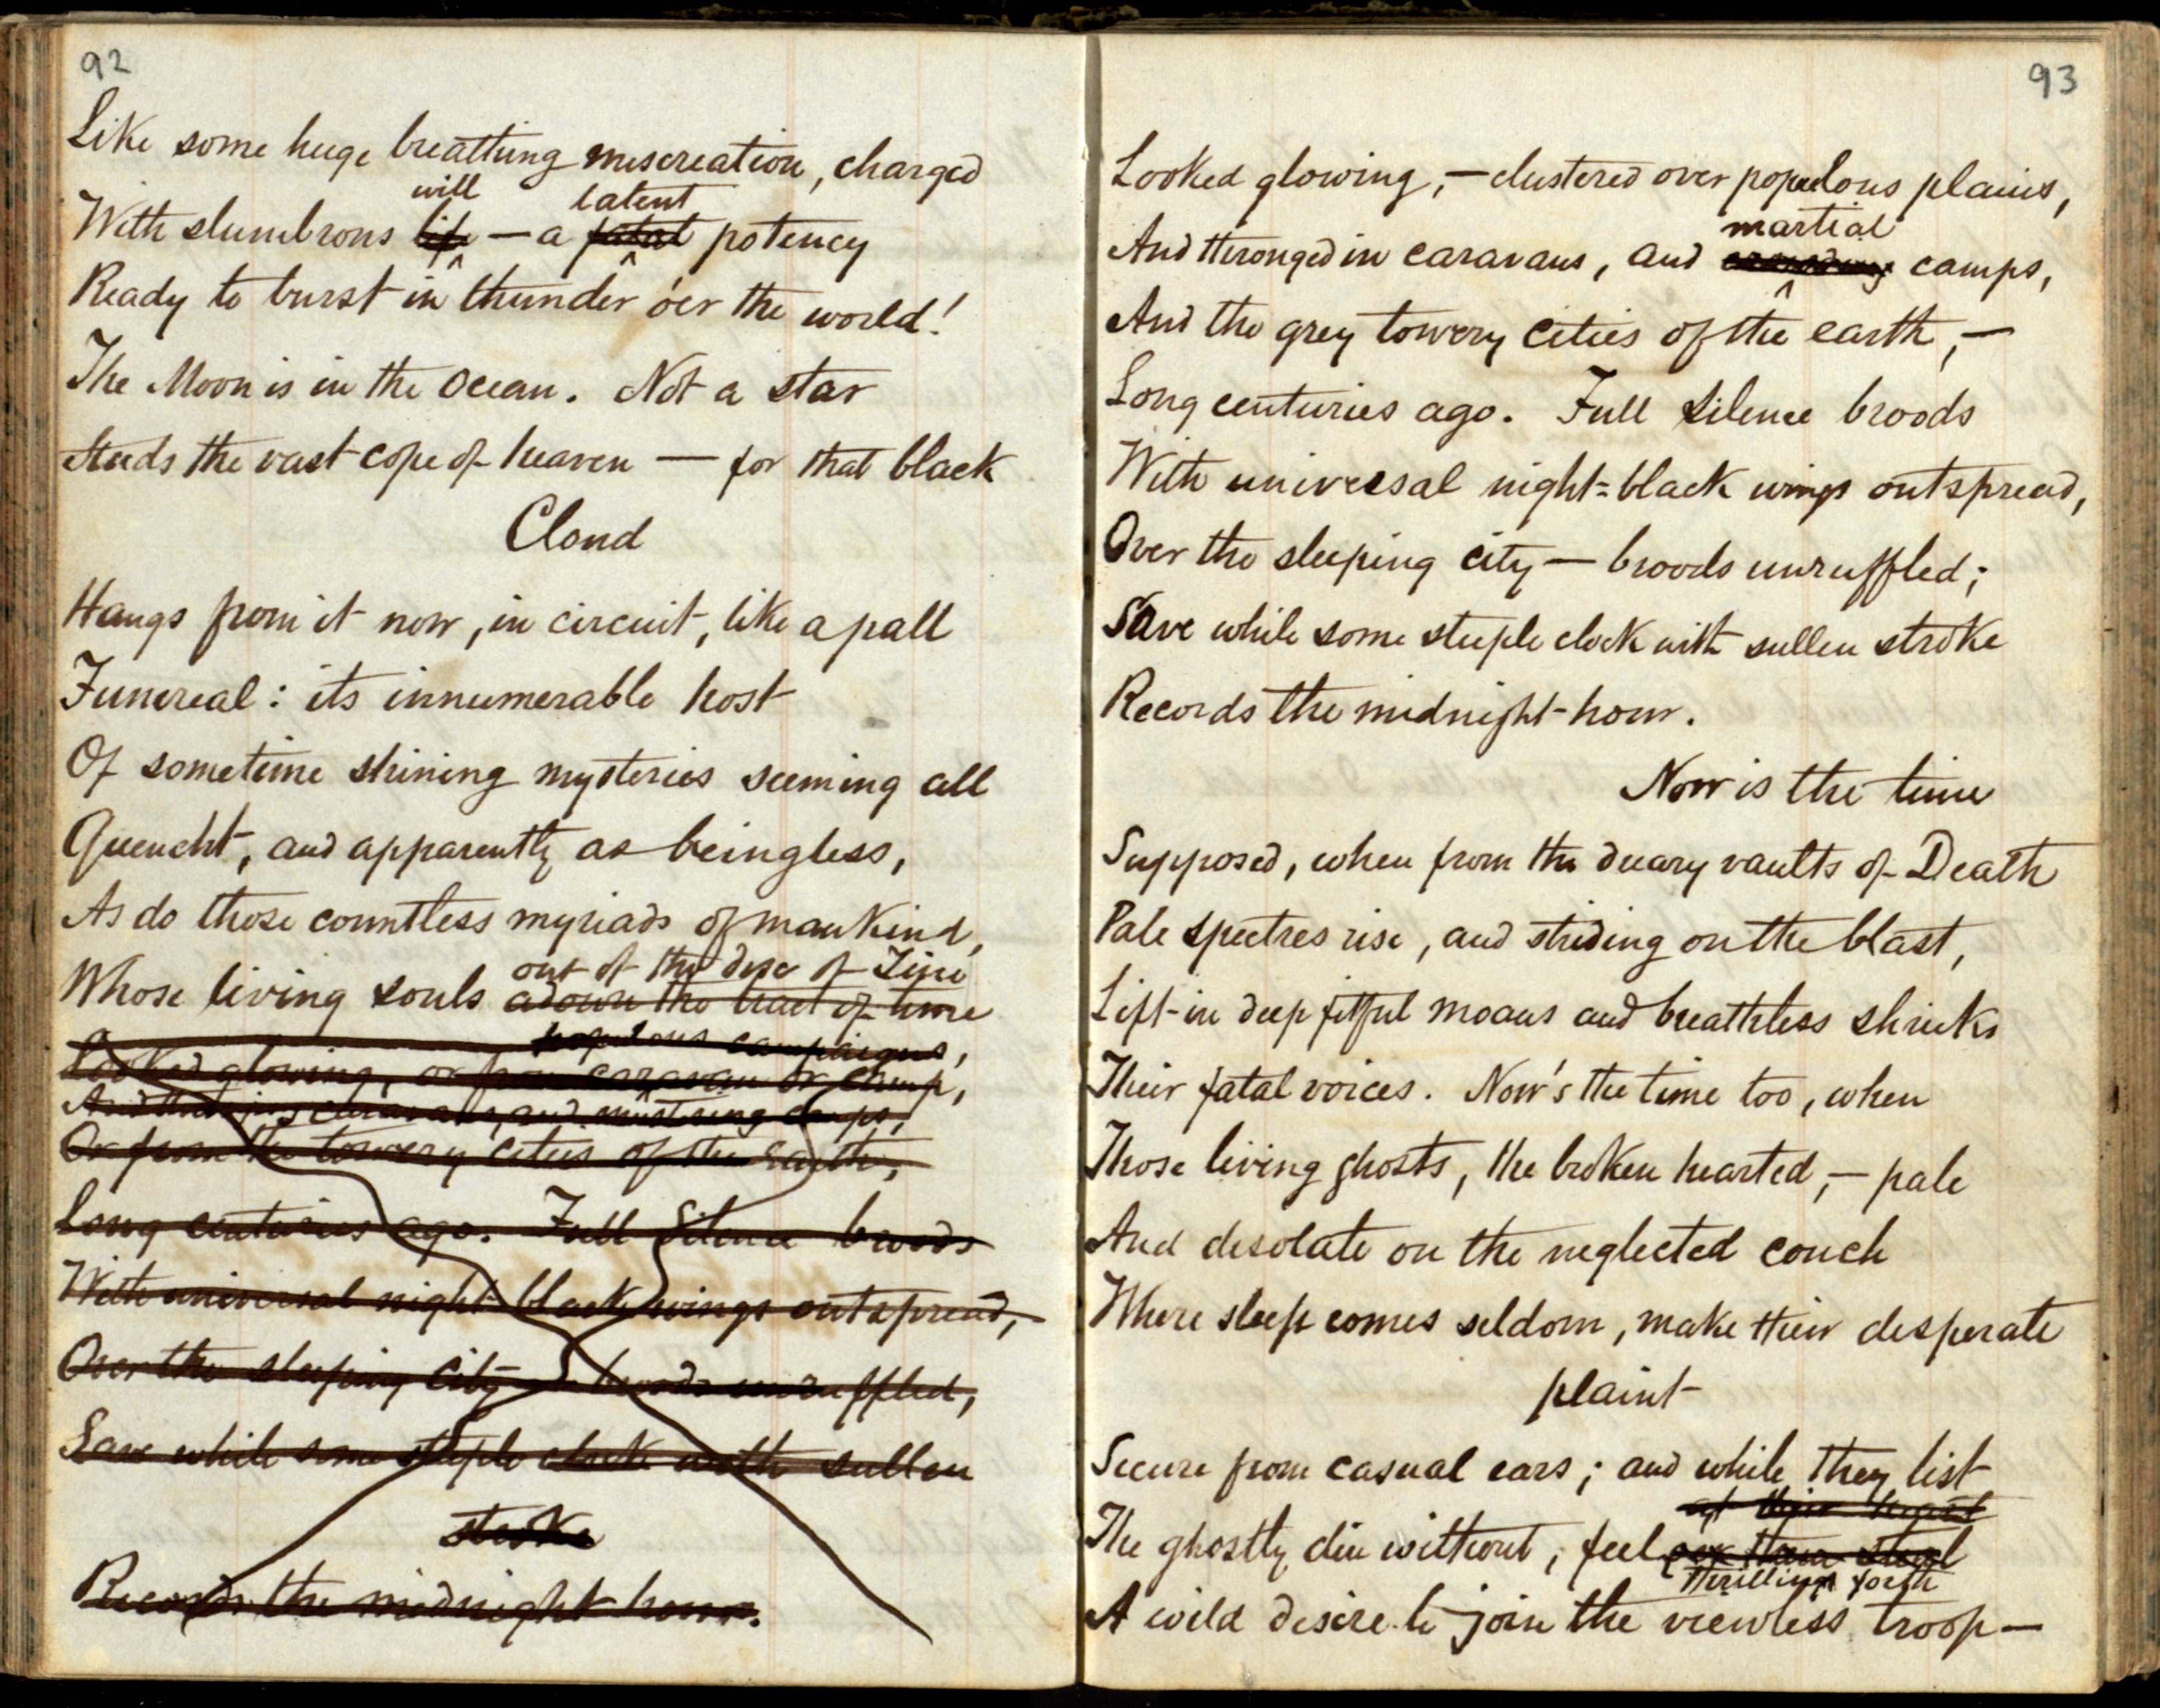 92
Like some huge breathing miscreation, charged
will latent
With slumbrous life — a fatal potency
Ready to burst in thunder o'er the world!
The Moon is in the Ocean. Not a star
Studs the vast cope of heaven — for that black
Cloud
Hangs from it now, in circuit, like a pall
Funereal: its innumerable host
Of sometime shining mysteries seeming all
Quencht, and apparently as beingless,
As do those countless myriads of mankind,
out of the dese of Time
Whose living souls adown the tract of time
populous campaigns,
Looked glowing, or from caravan or camp,
And thronging caravans, and mustering camps,
Or from the towery cities of the Earth,
Long centuries ago. Full Silence broods
With universal night-black wings outspread,
Over the sleeping city — broods unruffled,
Save while some steeple clock with sullen
stroke
Records the midnight hour.
93
Looked glowing, — clustered over populous plains,
martial
And thronged in caravans, and camps,
And the grey towery cities of the earth, —
Long centuries ago. Full Silence broods
With universal night=black wings outspread,
Over the sleeping city — broods unruffled;
Save while some steeple clock with sullen stroke
Records the midnight-hour.
Now is the time
Supposed, when from the dreary vaults of Death
Pale spectres rise, and striding on the blast,
Lift in deep fitful moans and breathless shrieks
Their fatal voices. Now's the time too, when
Those living ghosts, the broken hearted, — pale
And desolate on the neglected couch
Where sleep comes seldom, make their desperate
plaint
Secure from casual ears; and while they list
at their heart
The ghostly din without, feel oer them steal
thrilling forth
A wild desire to join the viewless troop —